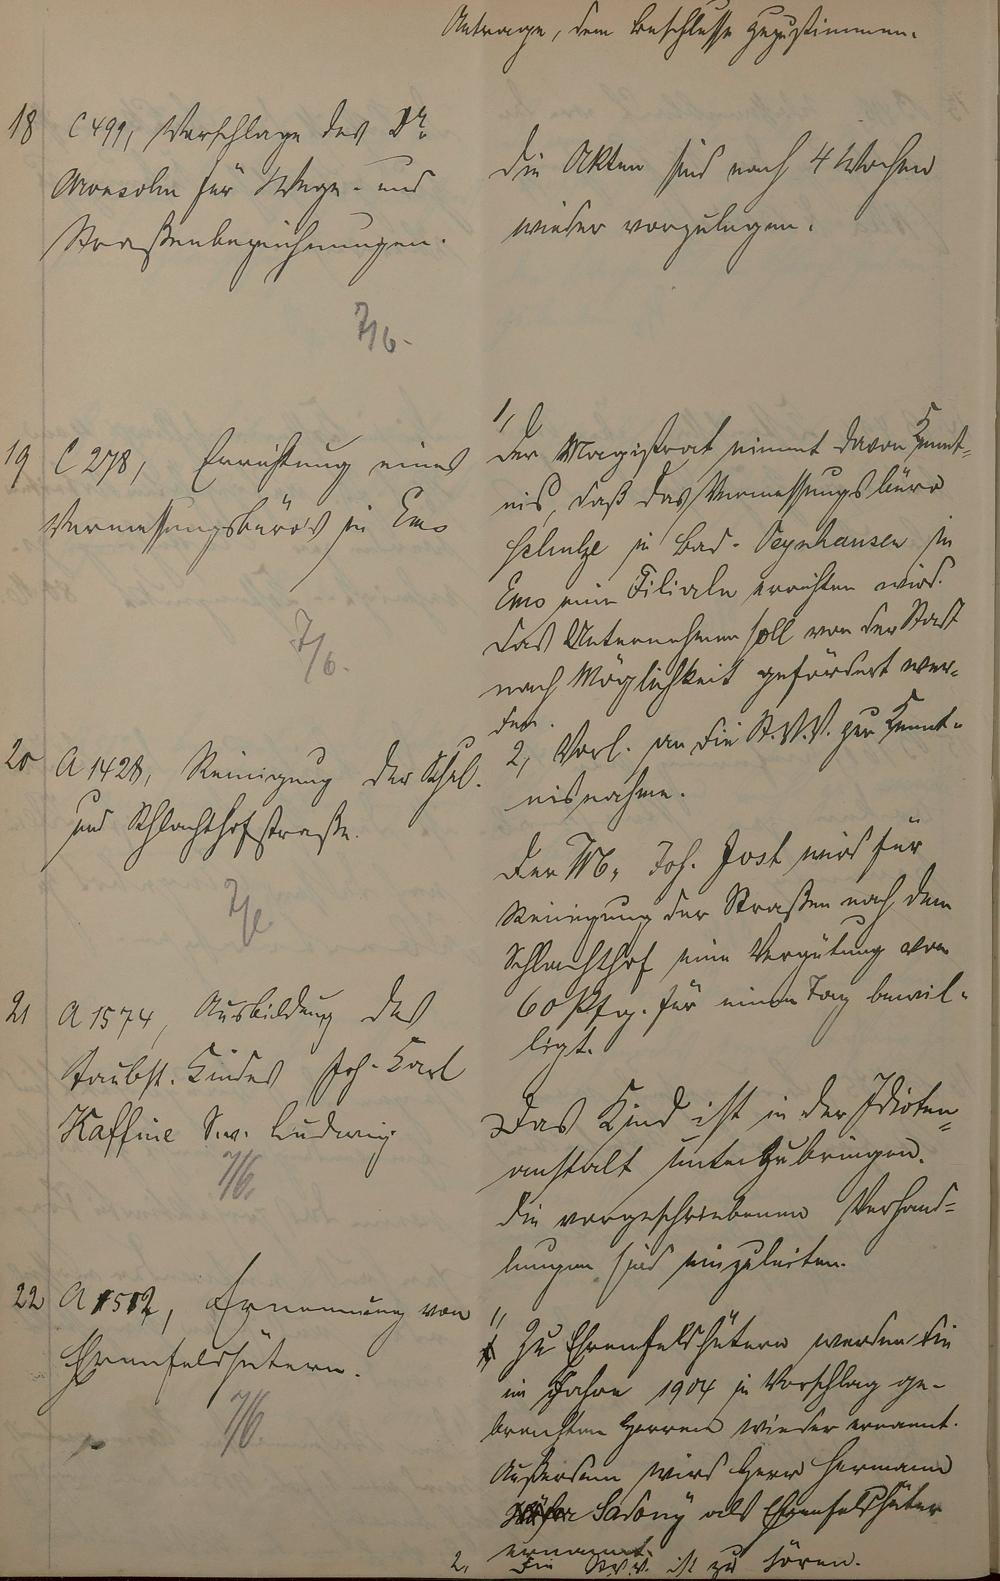 Antrage, dem Beschlusse zuzustimmen.
18 C 499, Vorschlage des Dr.
Aronsohn für Wege- und
Straßenbezeichnungen.
7/6.
Die Akten sind nach 4 Wochen
wieder vorzulegen.
19 C 278, Errichtung eines
Vermessungsbüros in Ems
7/6.
1,
Der Magistrat nimmt davon Kennt-
nis, daß das Vermessungsbüro
Schulze in Bad-Oeynhausen in
Ems eine Filiale errichten wird.
Das Unternehmen soll von der Stadt
nach Möglichkeit gefördert wer-
den.
2, Vorl. an die St.V.V. zur Kennt-
nisnahme.
20 A 1428, Reinigung der
und Schlachthofstraße.
Der Joh. Jost wird für
Reinigung der Straßen nach dem
Schlachthof eine Vergütung von
60 Pfg. für einen Tag bewil-
ligt.
21 A 1574, Ausbildung des
taubst. Kindes Joh. Karl
Kaffine Ludwig
7/6.
Das Kind ist in der Idioten-
anstalt unterzubringen.
Die vorgeschriebenen Verhand-
lungen sind einzuleiten.
22 A 1512, Ernennung von
Ehrenfeldhütern.
7/6.
1,
Zu Ehrenfeldhütern werden die
im Jahre 1904 in Vorschlag ge-
brachten Herren wieder ernannt.
Außerdem wird Herr Hermann
Sadony als Ehrenfeldhüter
ernannt.
2, Die St.V.V. ist zu hören.